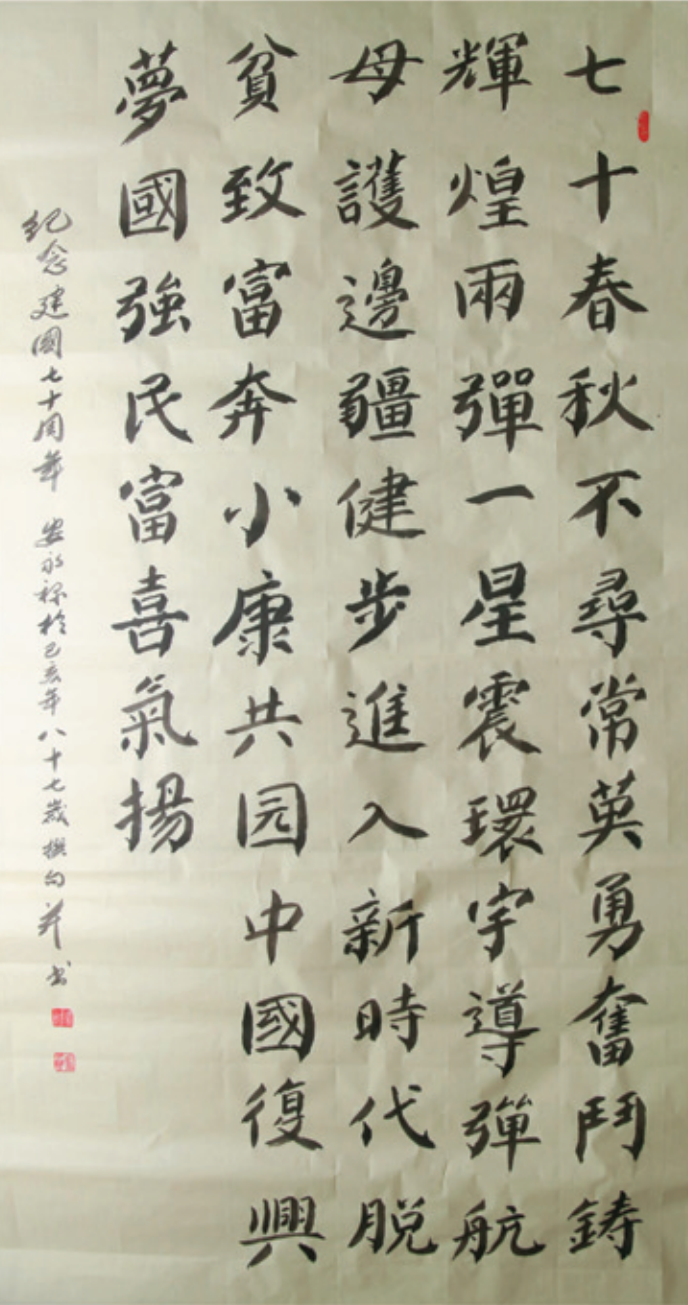 七十春秋不尋常英勇奮鬥鑄
輝煌兩彈一星震環宇導彈航
母護邊疆健步進入新時代脱
貧致富奔小康共园中國復興
夢國強民富喜氣揚
紀念建國七十周年 安永禄於己亥年八十七歲撰句并书